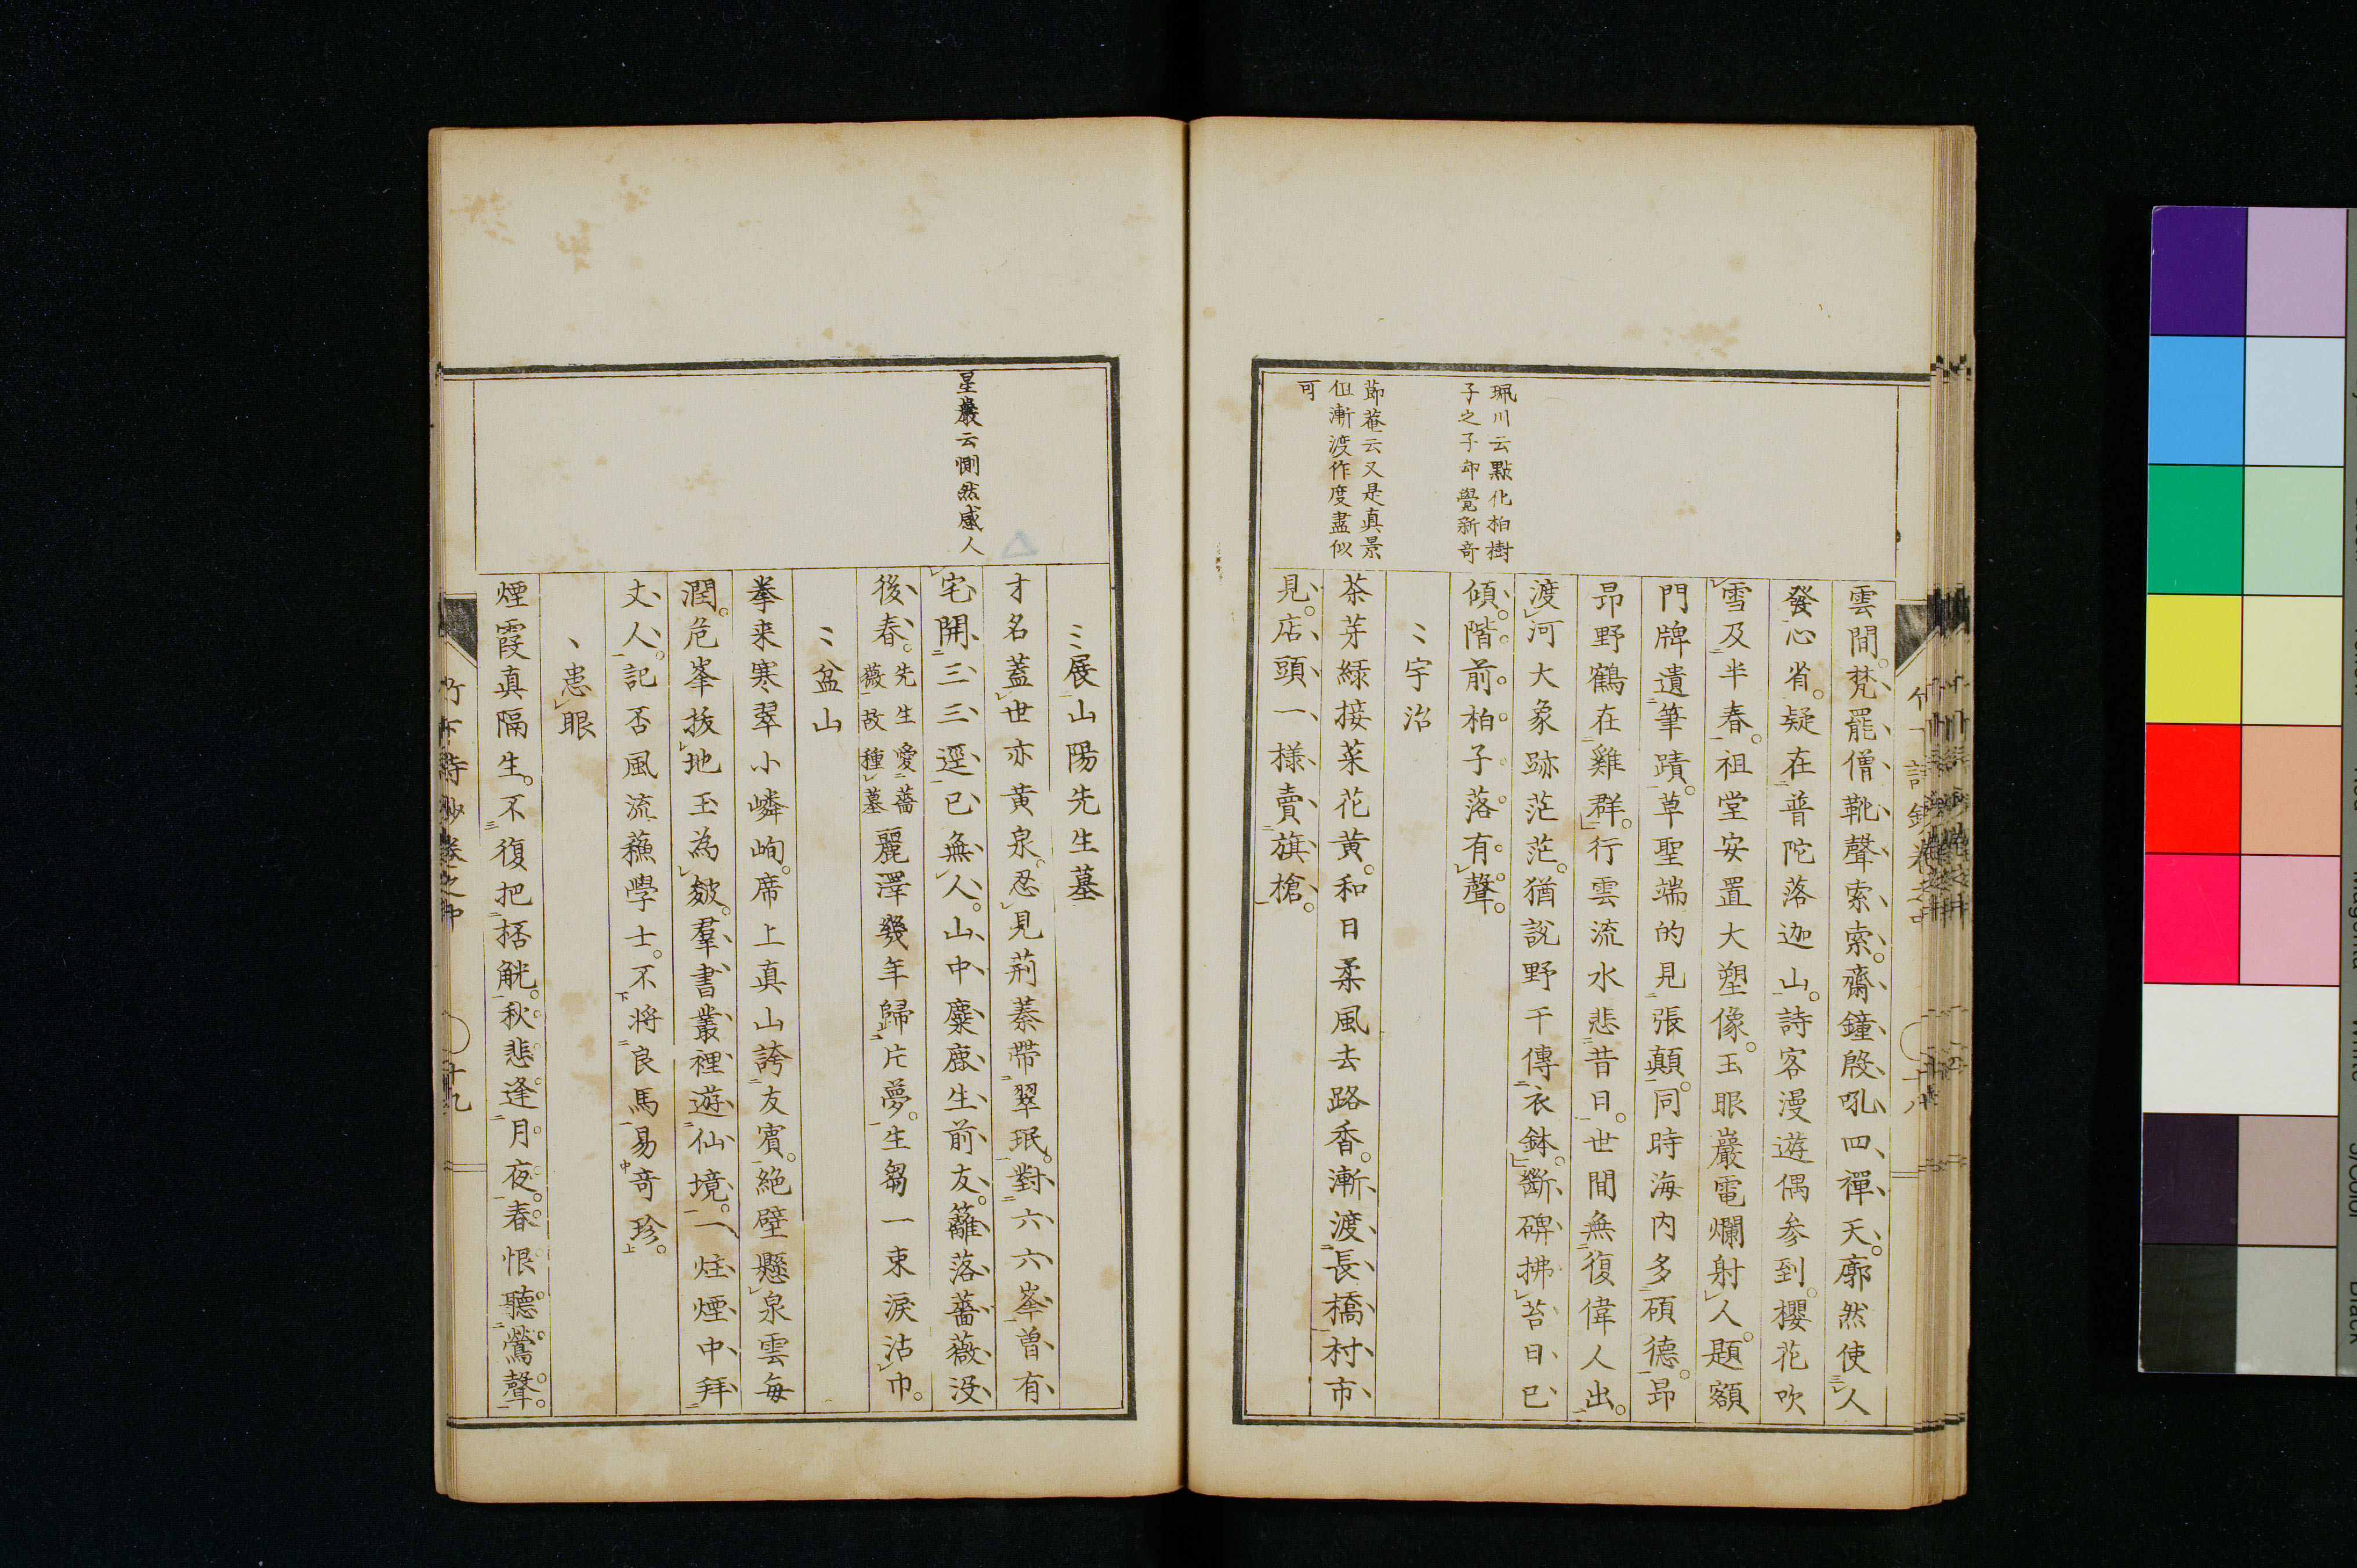 雲間。梵罷僧靴聲索索。齋鐘殷吼四禪天。廓然使人
發心省。疑在普陀落迦山。詩客漫遊偶参到。櫻花吹
雪及半春。祖堂安置大塑像。玉眼巖電爛射人。題額
門牌遺筆蹟。草聖端的見張顛。同時海内多碩德。昻
昻野鶴在雞群。行雲流水悲昔日。世間無復偉人出。
渡河大象跡茫茫。猶説野干傳衣鉢。斷碑拂苔日已
傾。階前柏子落有聲。
珮川云點化柏樹
子之子却覺新奇
〻宇治
茶芽緑接菜花黄。和日柔風去路香。漸渡長橋村市
見。店頭一様賣旗槍。
節菴云又是真景
伹漸渡作度盡似
可
〻展山陽先生墓
才名蓋世亦黄泉。忍見荊蓁帶翠珉。對六六峯曽有
宅。開三三逕已無人。山中麋鹿生前友。籬落薔薇没
後春。先生愛薔
薇故種墓
麗澤幾年歸片夢。生芻一束淚沾巾。
星巖云惻然感人
〻盆山
拳来寒翠小嶙峋。席上真山誇友賓。絶壁懸泉雲毎
潤。危峯拔地玉為皴。羣書叢裡遊仙境。一炷煙中拜
丈人。記否風流蘓學士。不将良馬易奇珍。
丶患眼
煙霞真隔生。不復把栝觥。秋悲逢月夜。春恨聽鶯聲。
十八
十九